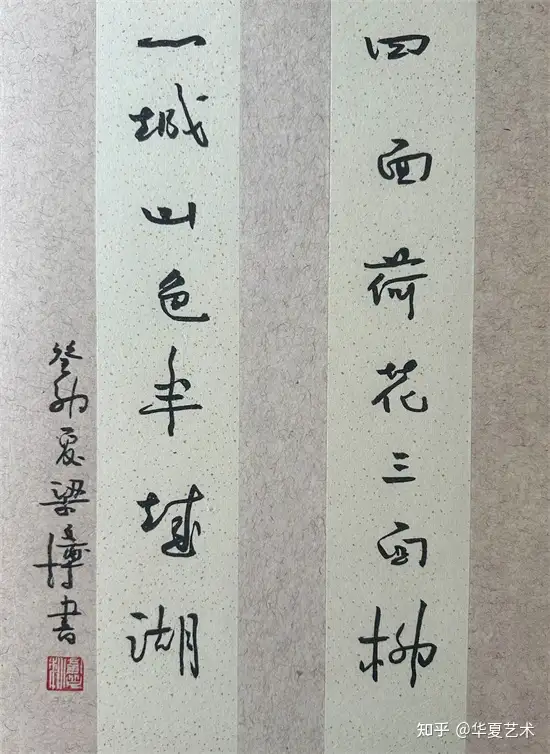 四面荷花三面柳
一城山色半城湖
癸卯夏梁博书
知乎 @华夏艺术